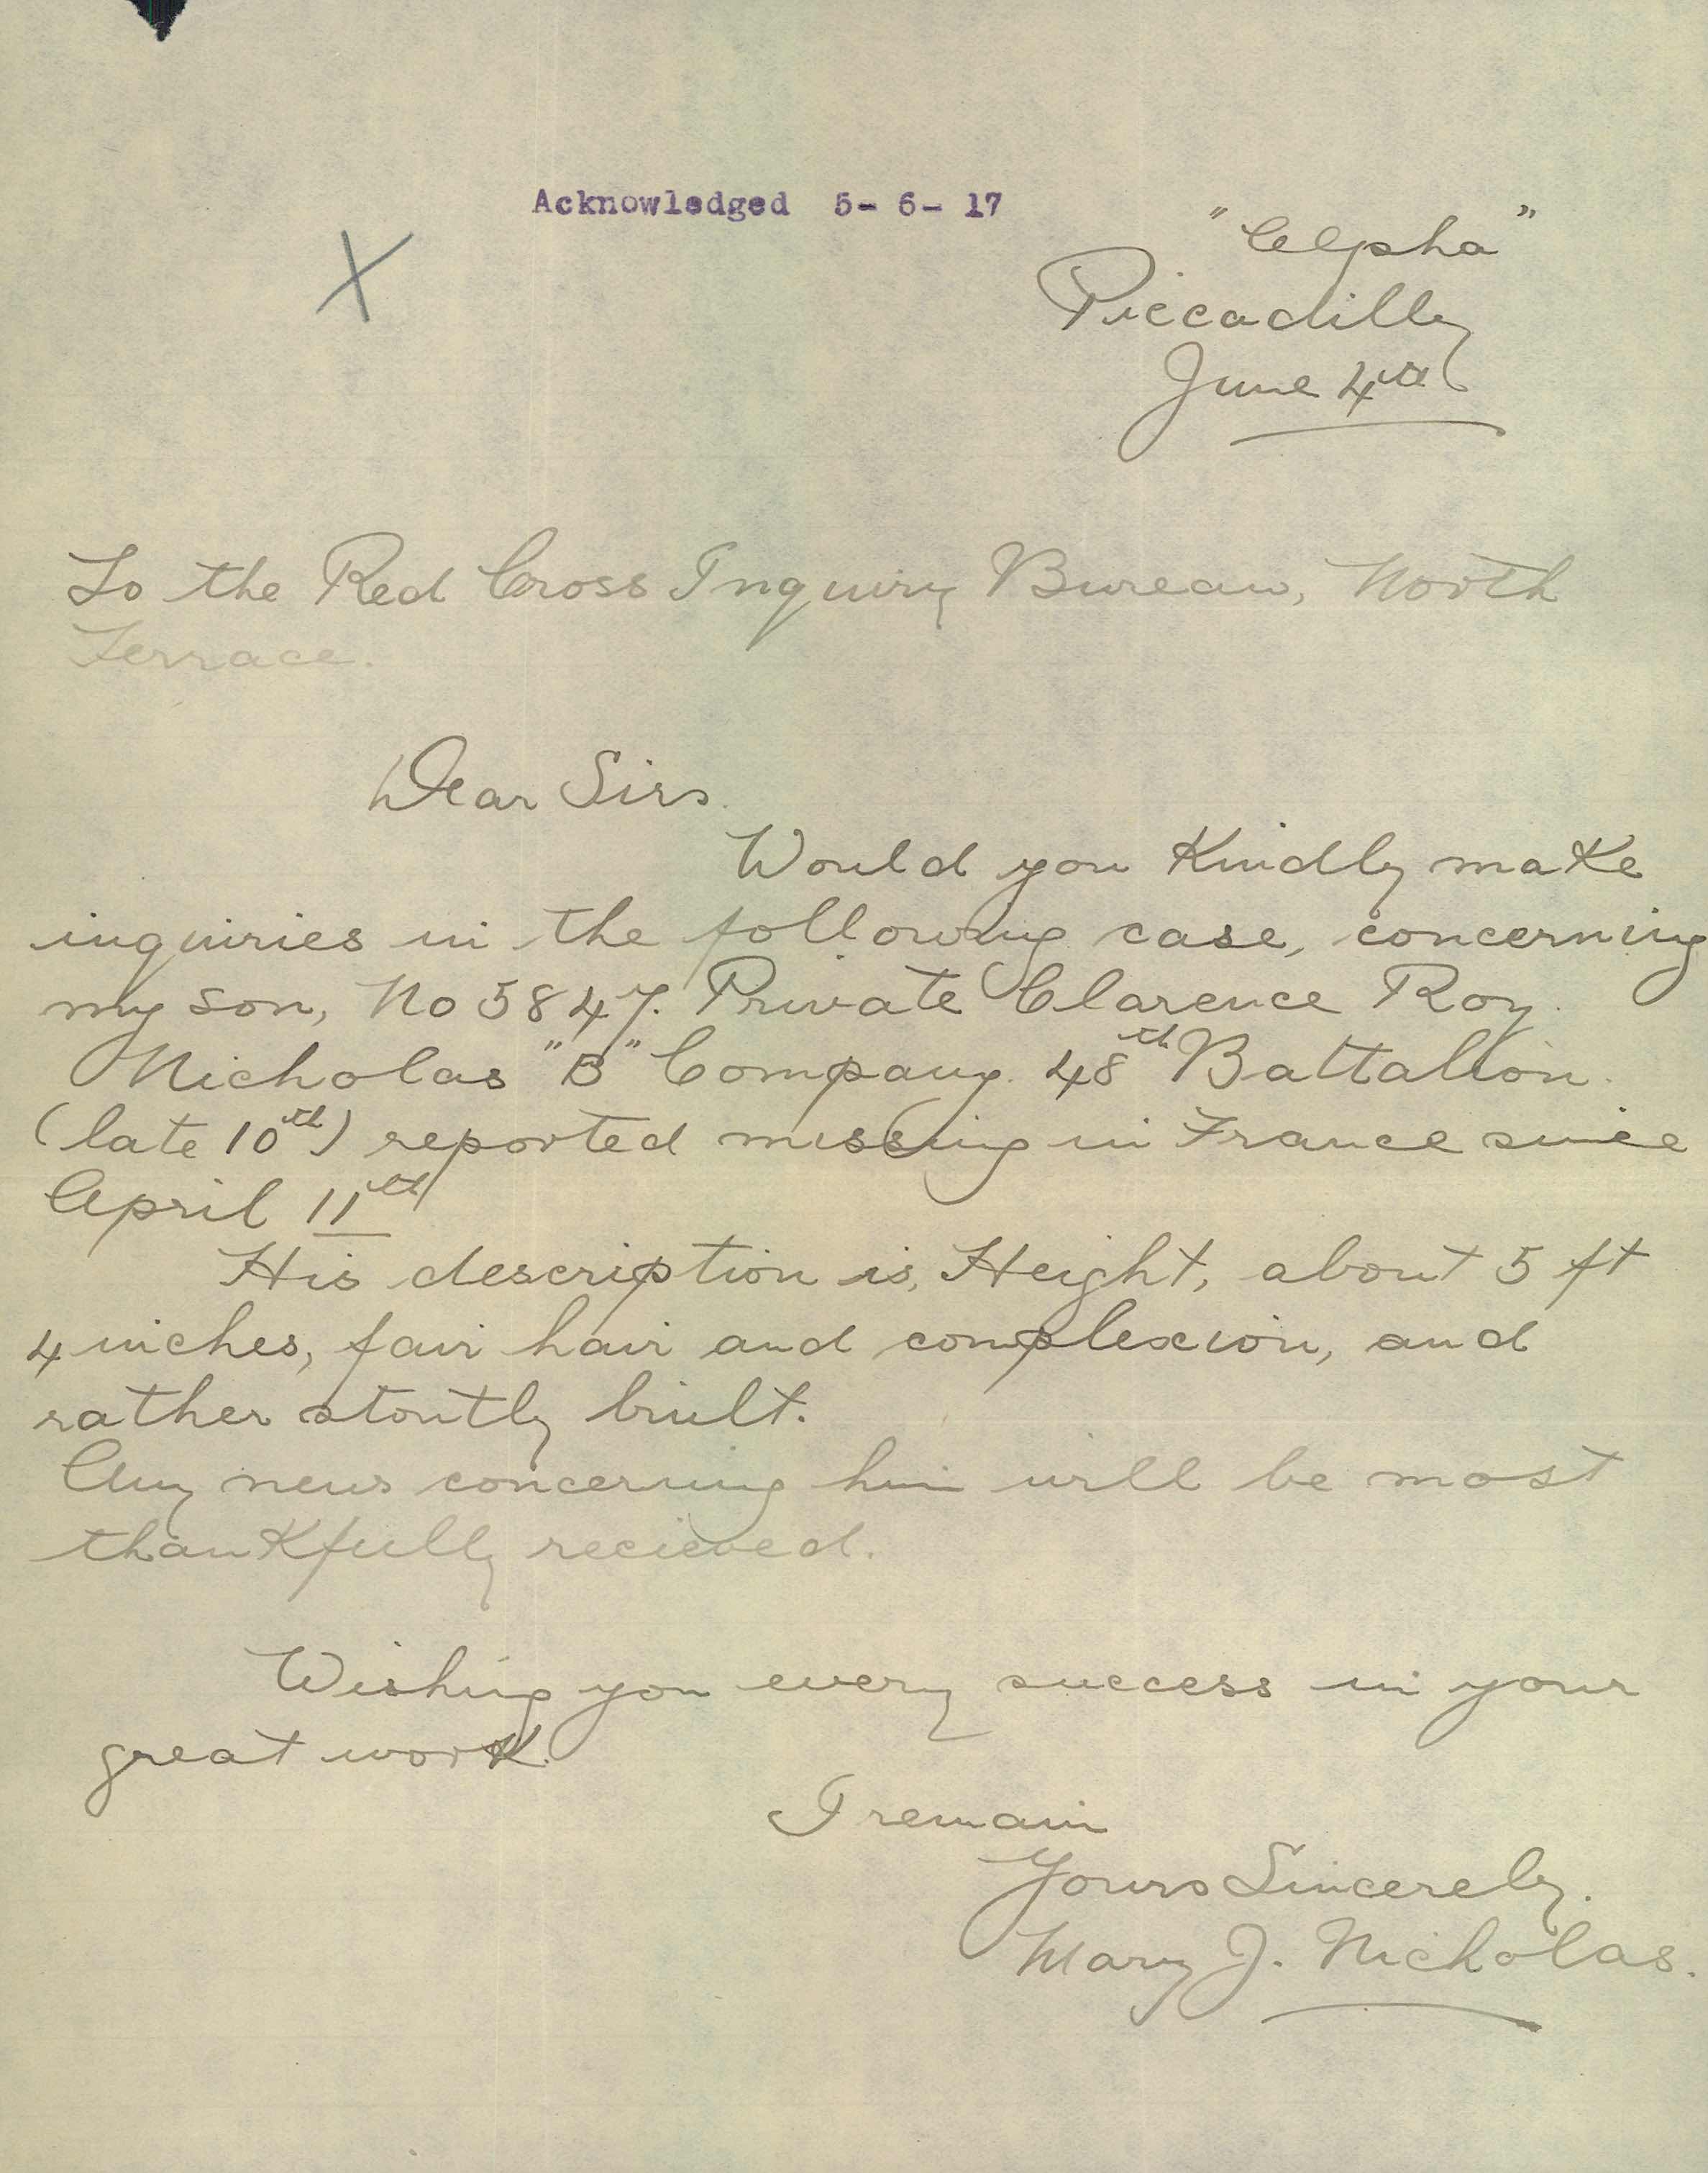 Acknowledged 5-6-17
X
"Alpha"
Piccadilly
June 4th
To the Red Cross Inquiry Bureau, North
Terrace.
Dear Sirs.
Would you Kindly make
inquiries in the following case, concerning
my son, No 5847. Private Clarence Roy.
Nicholas "B" Company. 48th Battalion.
(late 10th) reported missing in France since
April 11th
His description is, Height, about 5 ft
4 inches, fair hair and complexion, and
rather stoutly built.
Any news concerning him will be most
thankfully recieved.
Wishing you every success in your
great work.
I remain
Yours Sincerely.
Mary J. Nicholas.